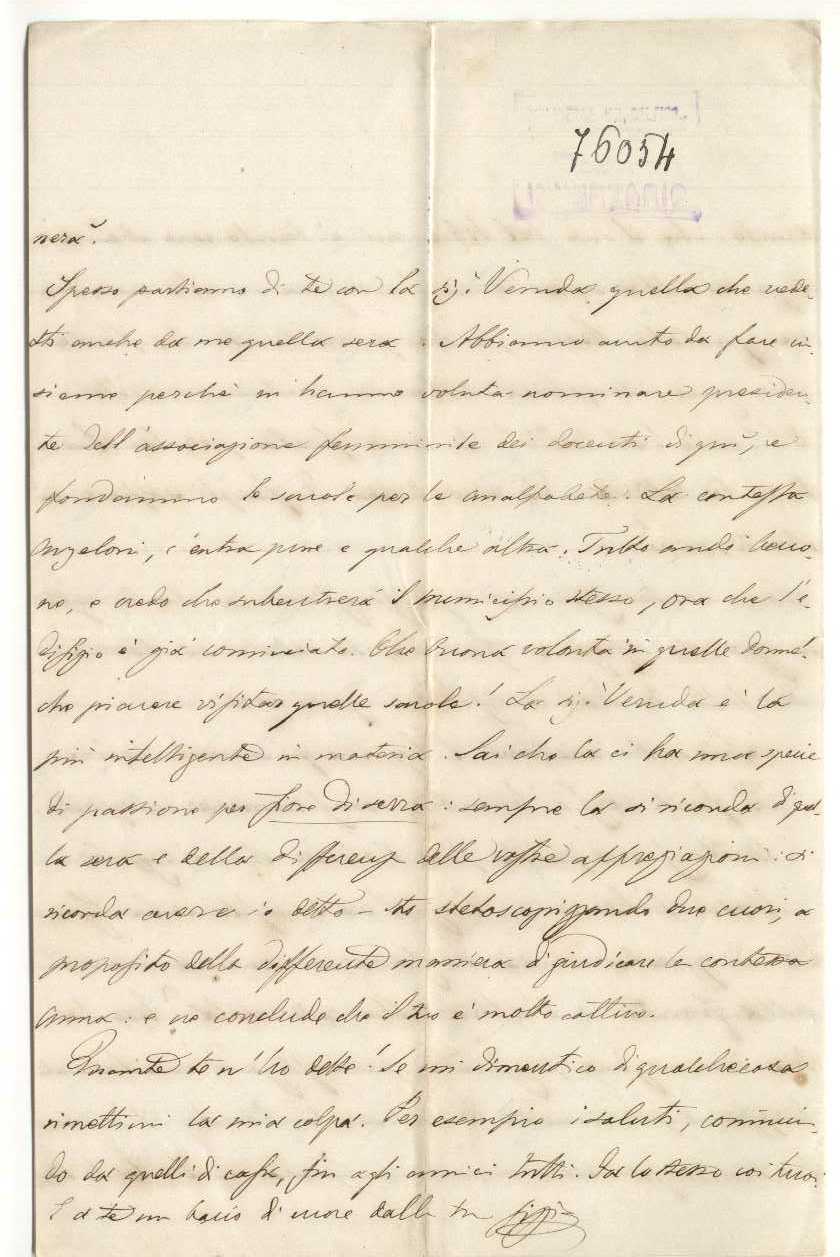 76054
nerà.
Spesso parliamo di te con la sig.ª Veruda, quella che vede-
sti anche da me quella sera. Abbiamo avuto da fare in-
sieme perchè mi hanno voluta nominare presiden-
te dell'associazione femminile dei docenti di qui, e
fondammo le scuole per le analfabete. La contessa
Angeloni, c'entra pure e qualche altra. Tutto andò beno-
ne, e credo che subentrerà il municipio stesso, ora che l'e-
difizio è già cominciato. Che buona volontà in quelle donne!
che piacere visitar quelle scuole! La sig.ª Veruda è la
più intelligente in materia. Sai che la ci ha una specie
di passione per fiore di serra: sempre la si ricorda di quel-
la sera e della differenza delle vostre apprezziazioni: si
ricorda avere io detto – sto stetoscopizzando due cuori, a
proposito della differente maniera di giudicare la contessa
Anna: e ne conclude che il tuo è molto cattivo.
Quante te n'ho dette! Se mi dimentico di qualchecosa
rimettimi la mia colpa. Per esempio i saluti, comincian-
do da quelli di casa, fin agli amici tutti. Fa lo stesso coi tuoi.
E a te un bacio di cuore dalla tua